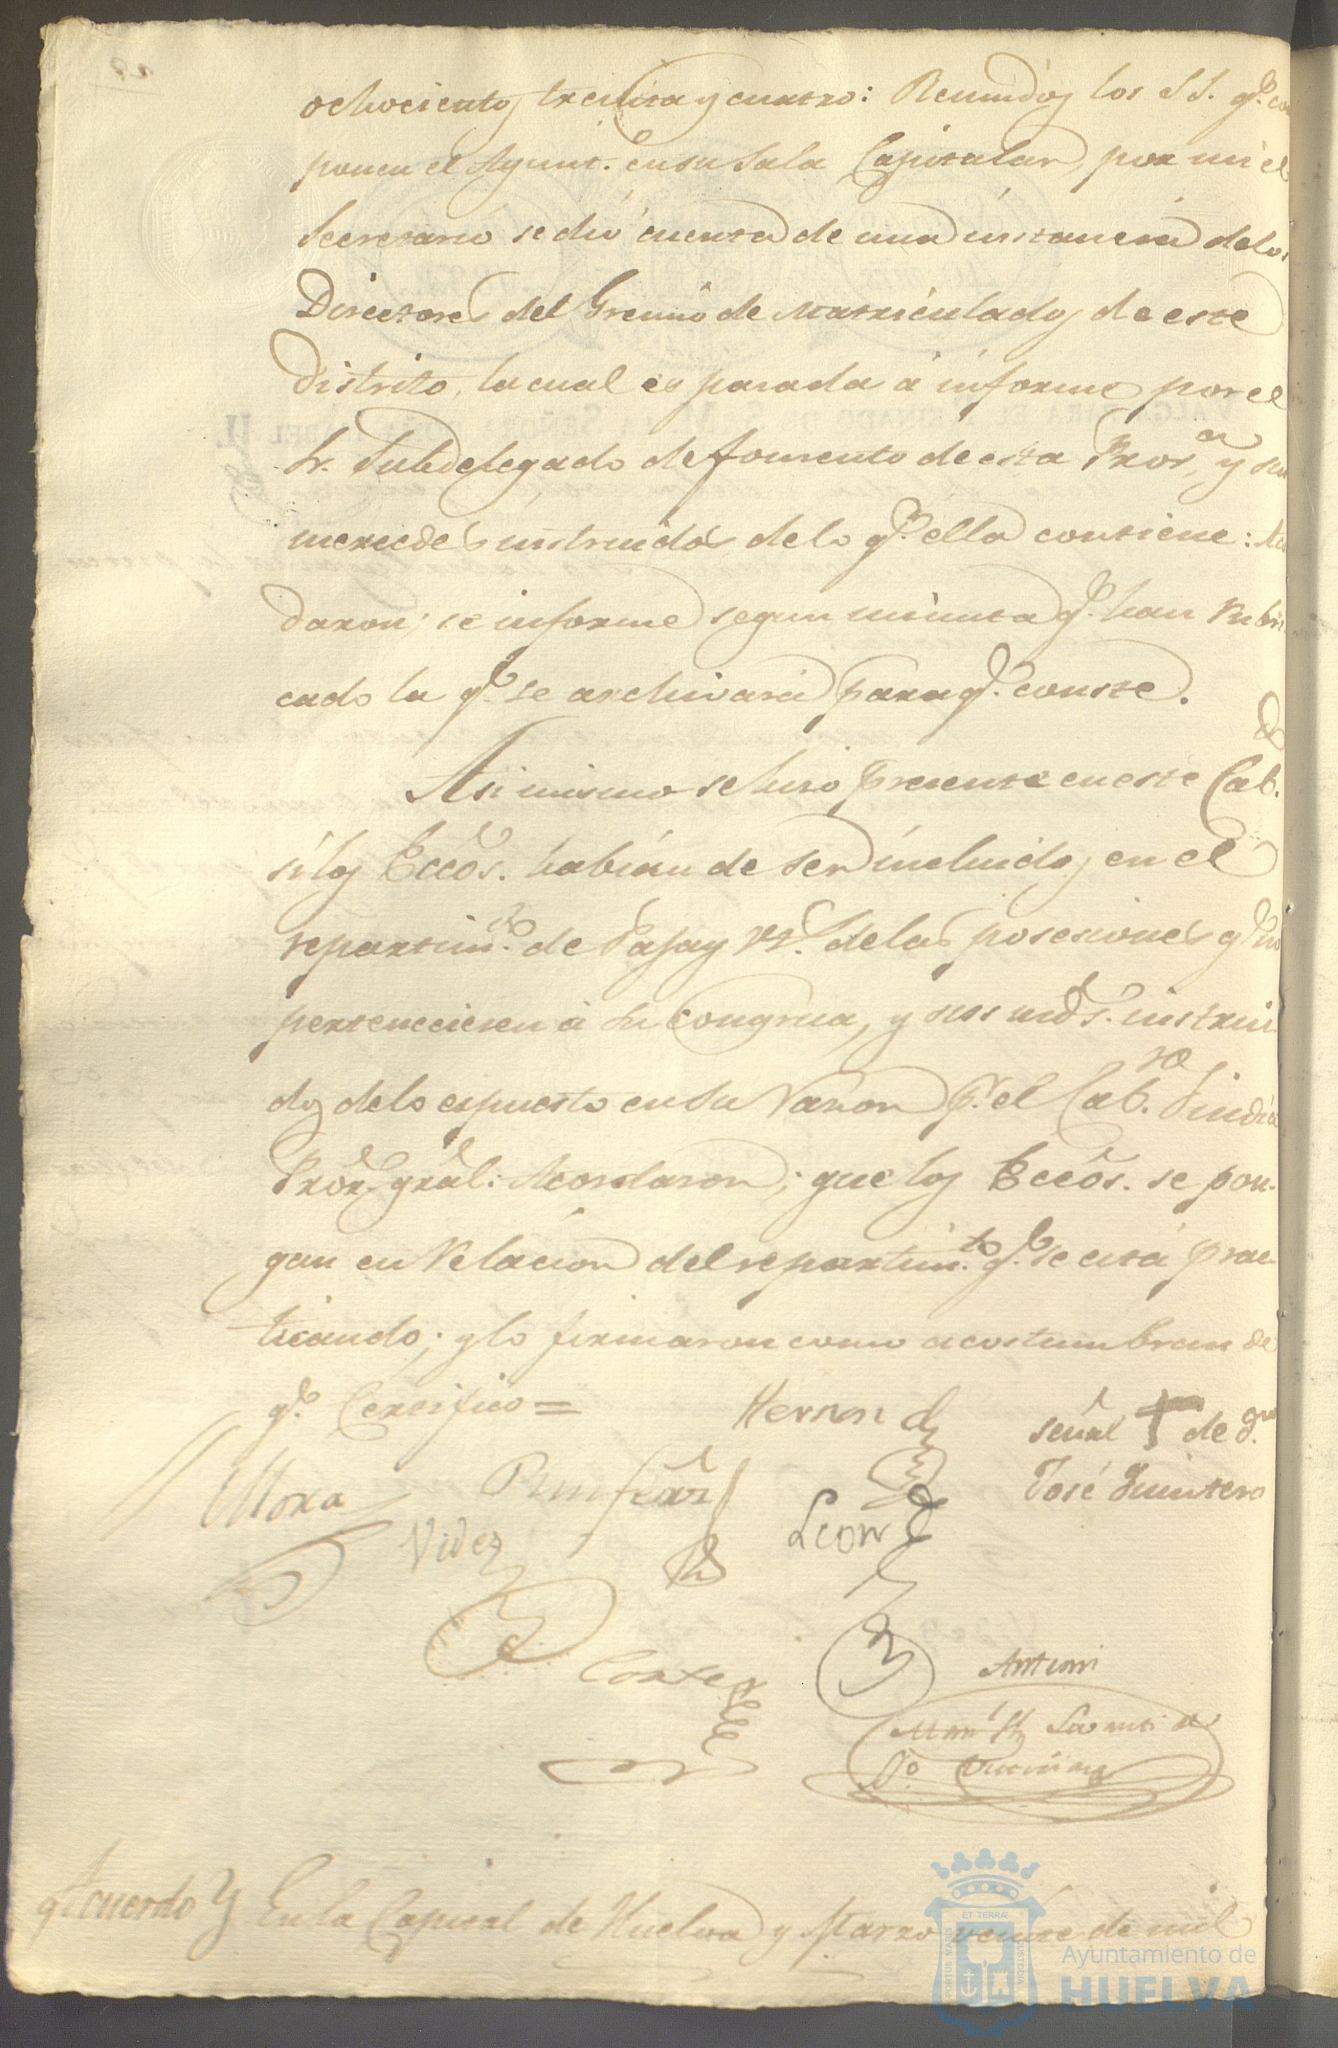 ochocientos treinta y cuatro: Reunidos los SS. qe. com
ponen el Ayunt. en su Sala Capitular, por mi el
Secretario se dió cuenta de una instancia de los
Directores del Gremio de Matriculados de este
Distrito, la cual es pasada á informe por el
Sr. Subdelegado de fomento de esta Prova. y sus
mercedes instruidos de lo qe. ella contiene: Acor
daron; se informe segun minuta qe. han rubri
cado la qe. se archivará para qe. conste.
Asi mismo se hizo presente en este Cabdo.
si los Eccos. habian de ser incluidos en el
repartimto. de Paja y de las posesiones qe. no
pertenecieren á su Congrua, y sus mds. instrui
dos de lo espuesto en su razon pr. el Cabro. Sindico
Pror. gral: Acordaron; que los Eccos. se pon-
gan en relacion del repartimto. qe. se está prac
ticando; y lo firmaron como acostumbran de
qe. Certifico =
Hernand señal + de qe.
Mora José Quintero
Videz Leon
Cortes
Antemi
Acuerdo En la Capital de Huelva y Marzo veinte de mil
ET TERRÆ
PORTUS MARIS
CUSTODIA
Ayuntamiento de
HUELVA